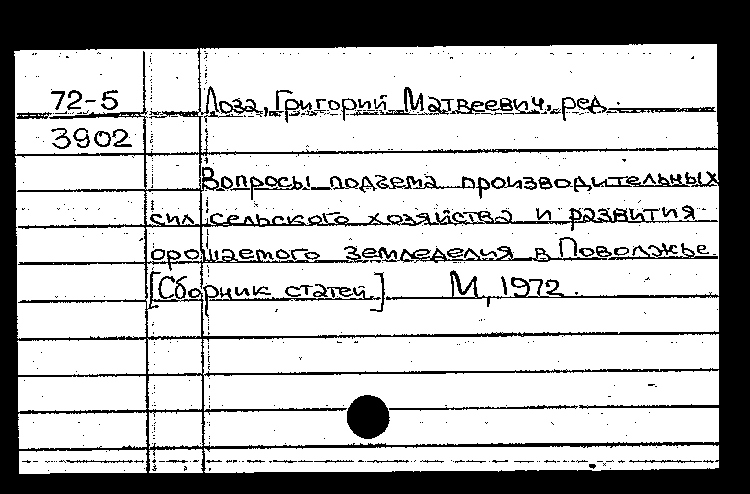 72-5 Лоза, Григорий Матвеевич, ред.
3902
Вопросы подъема производительных
сил сельского хозяйства и развития
орошаемого земледелия в Поволжье.
[Сборник статей.] М, 1972.